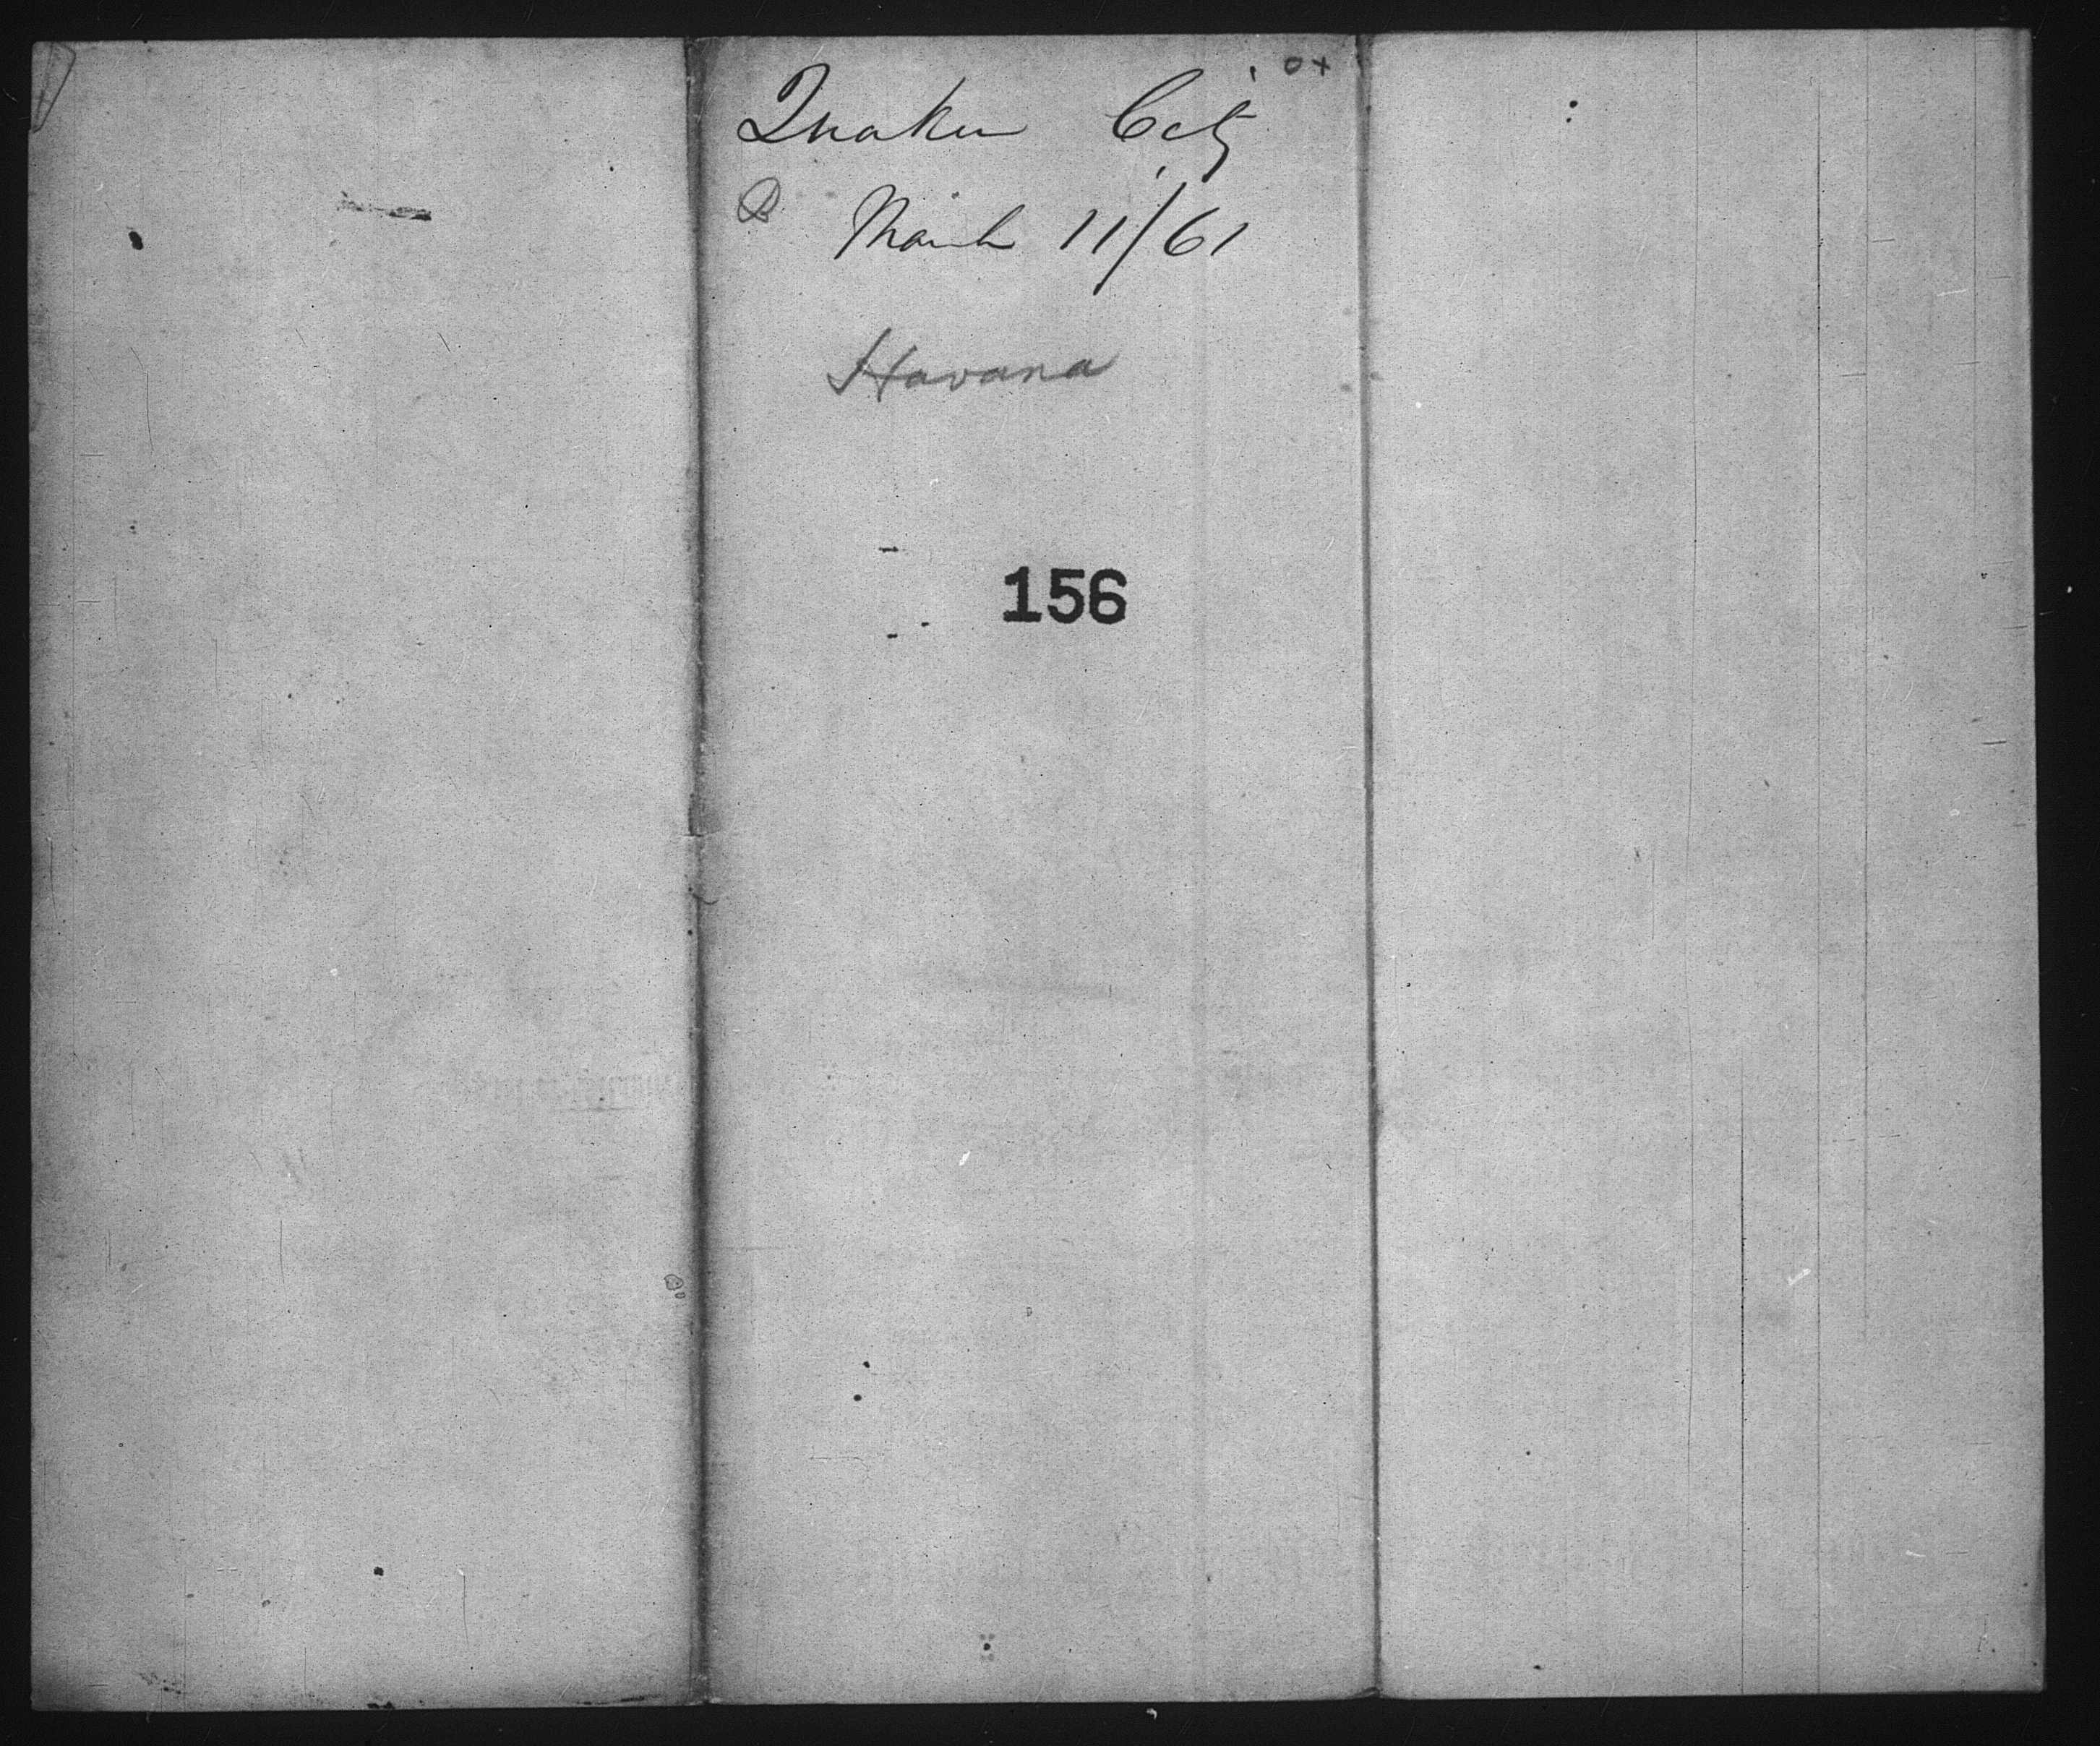 Quaker City
March 11/61
Havana
156